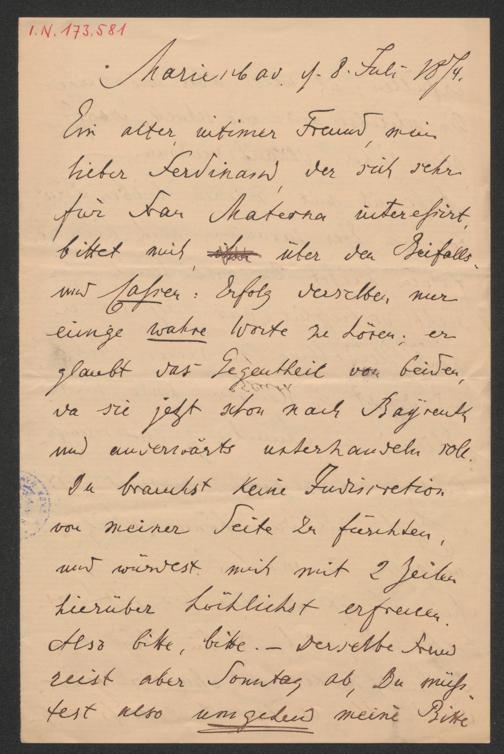 I.N. 173.581
Marienbad. d. 8. Juli 1874.
Ein alter, intimer Freund, mein
lieber Ferdinand, der sich sehr
für Frau Materna interessirt,
bittet mich, über den Beifalls-
und Cassen: Erfolg derselben nur
einige wahre Worte zu hören; er
glaubt das Gegentheil von beiden,
da sie jetzt schon nach Bayreuth
und anderwärts unterhandeln soll.
Du brauchst keine Indiscretion
von meiner Seite zu fürchten,
und würdest mich mit 2 Zeilen
hierüber höchlichst erfreuen.
Also bitte, bitte. – Derselbe Freund
reist aber Sonntag ab, Du müß-
test also umgehend meine Bitte